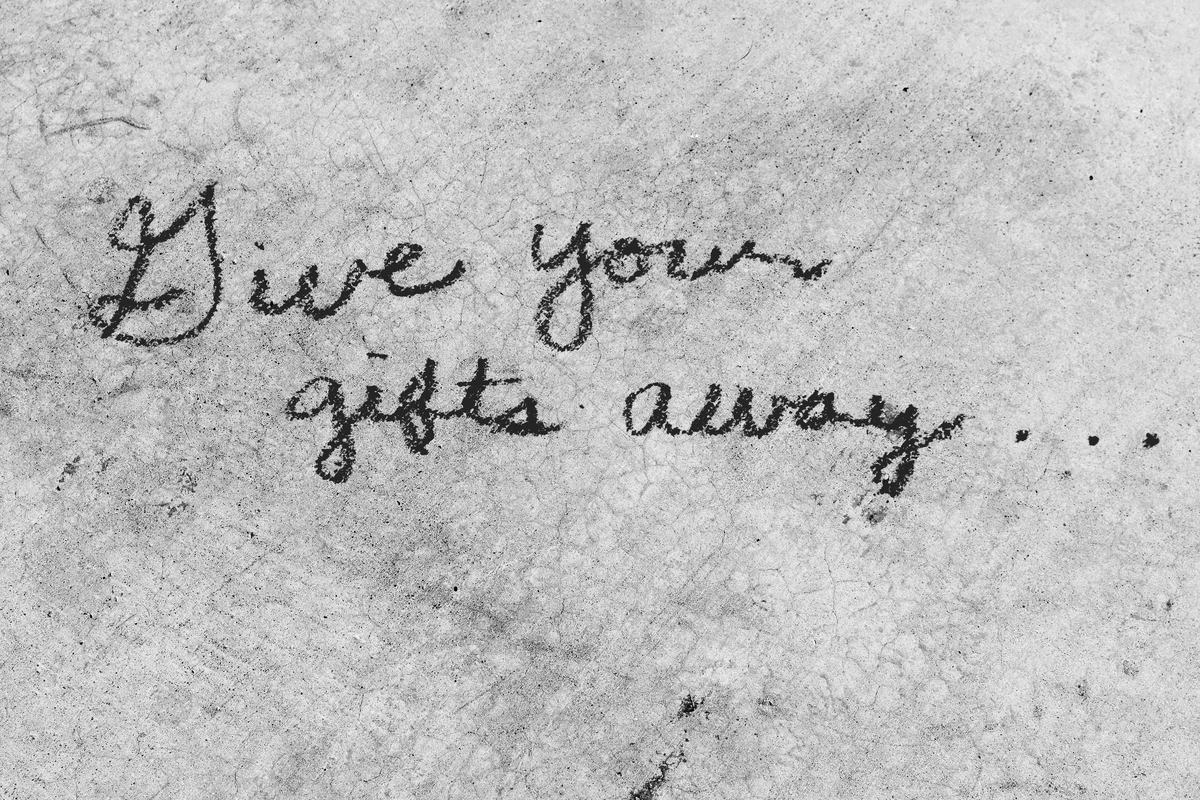 Give your
gifts away . . .